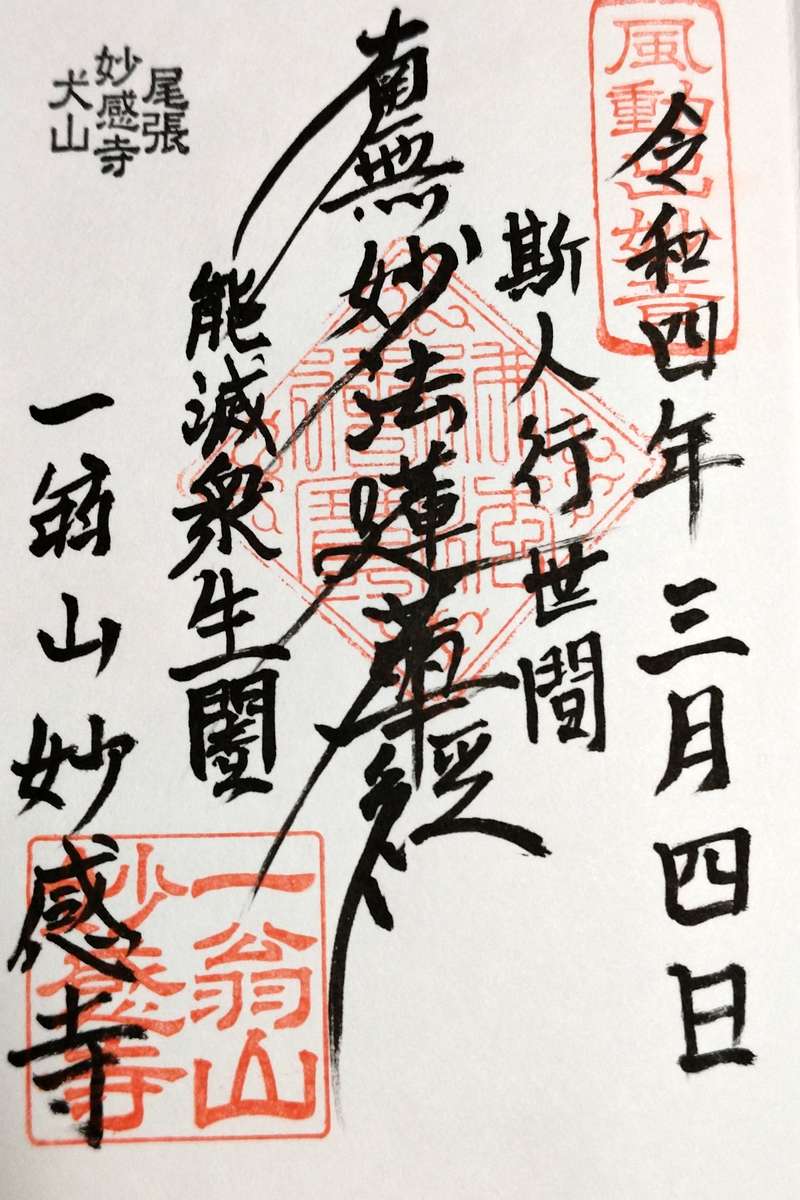 風動出妙音
令和四年三月四日
斯人行世間
南無妙法蓮華経
能滅衆生闇
一翁山妙感寺
一翁山
妙感寺
尾張
妙感寺
犬山